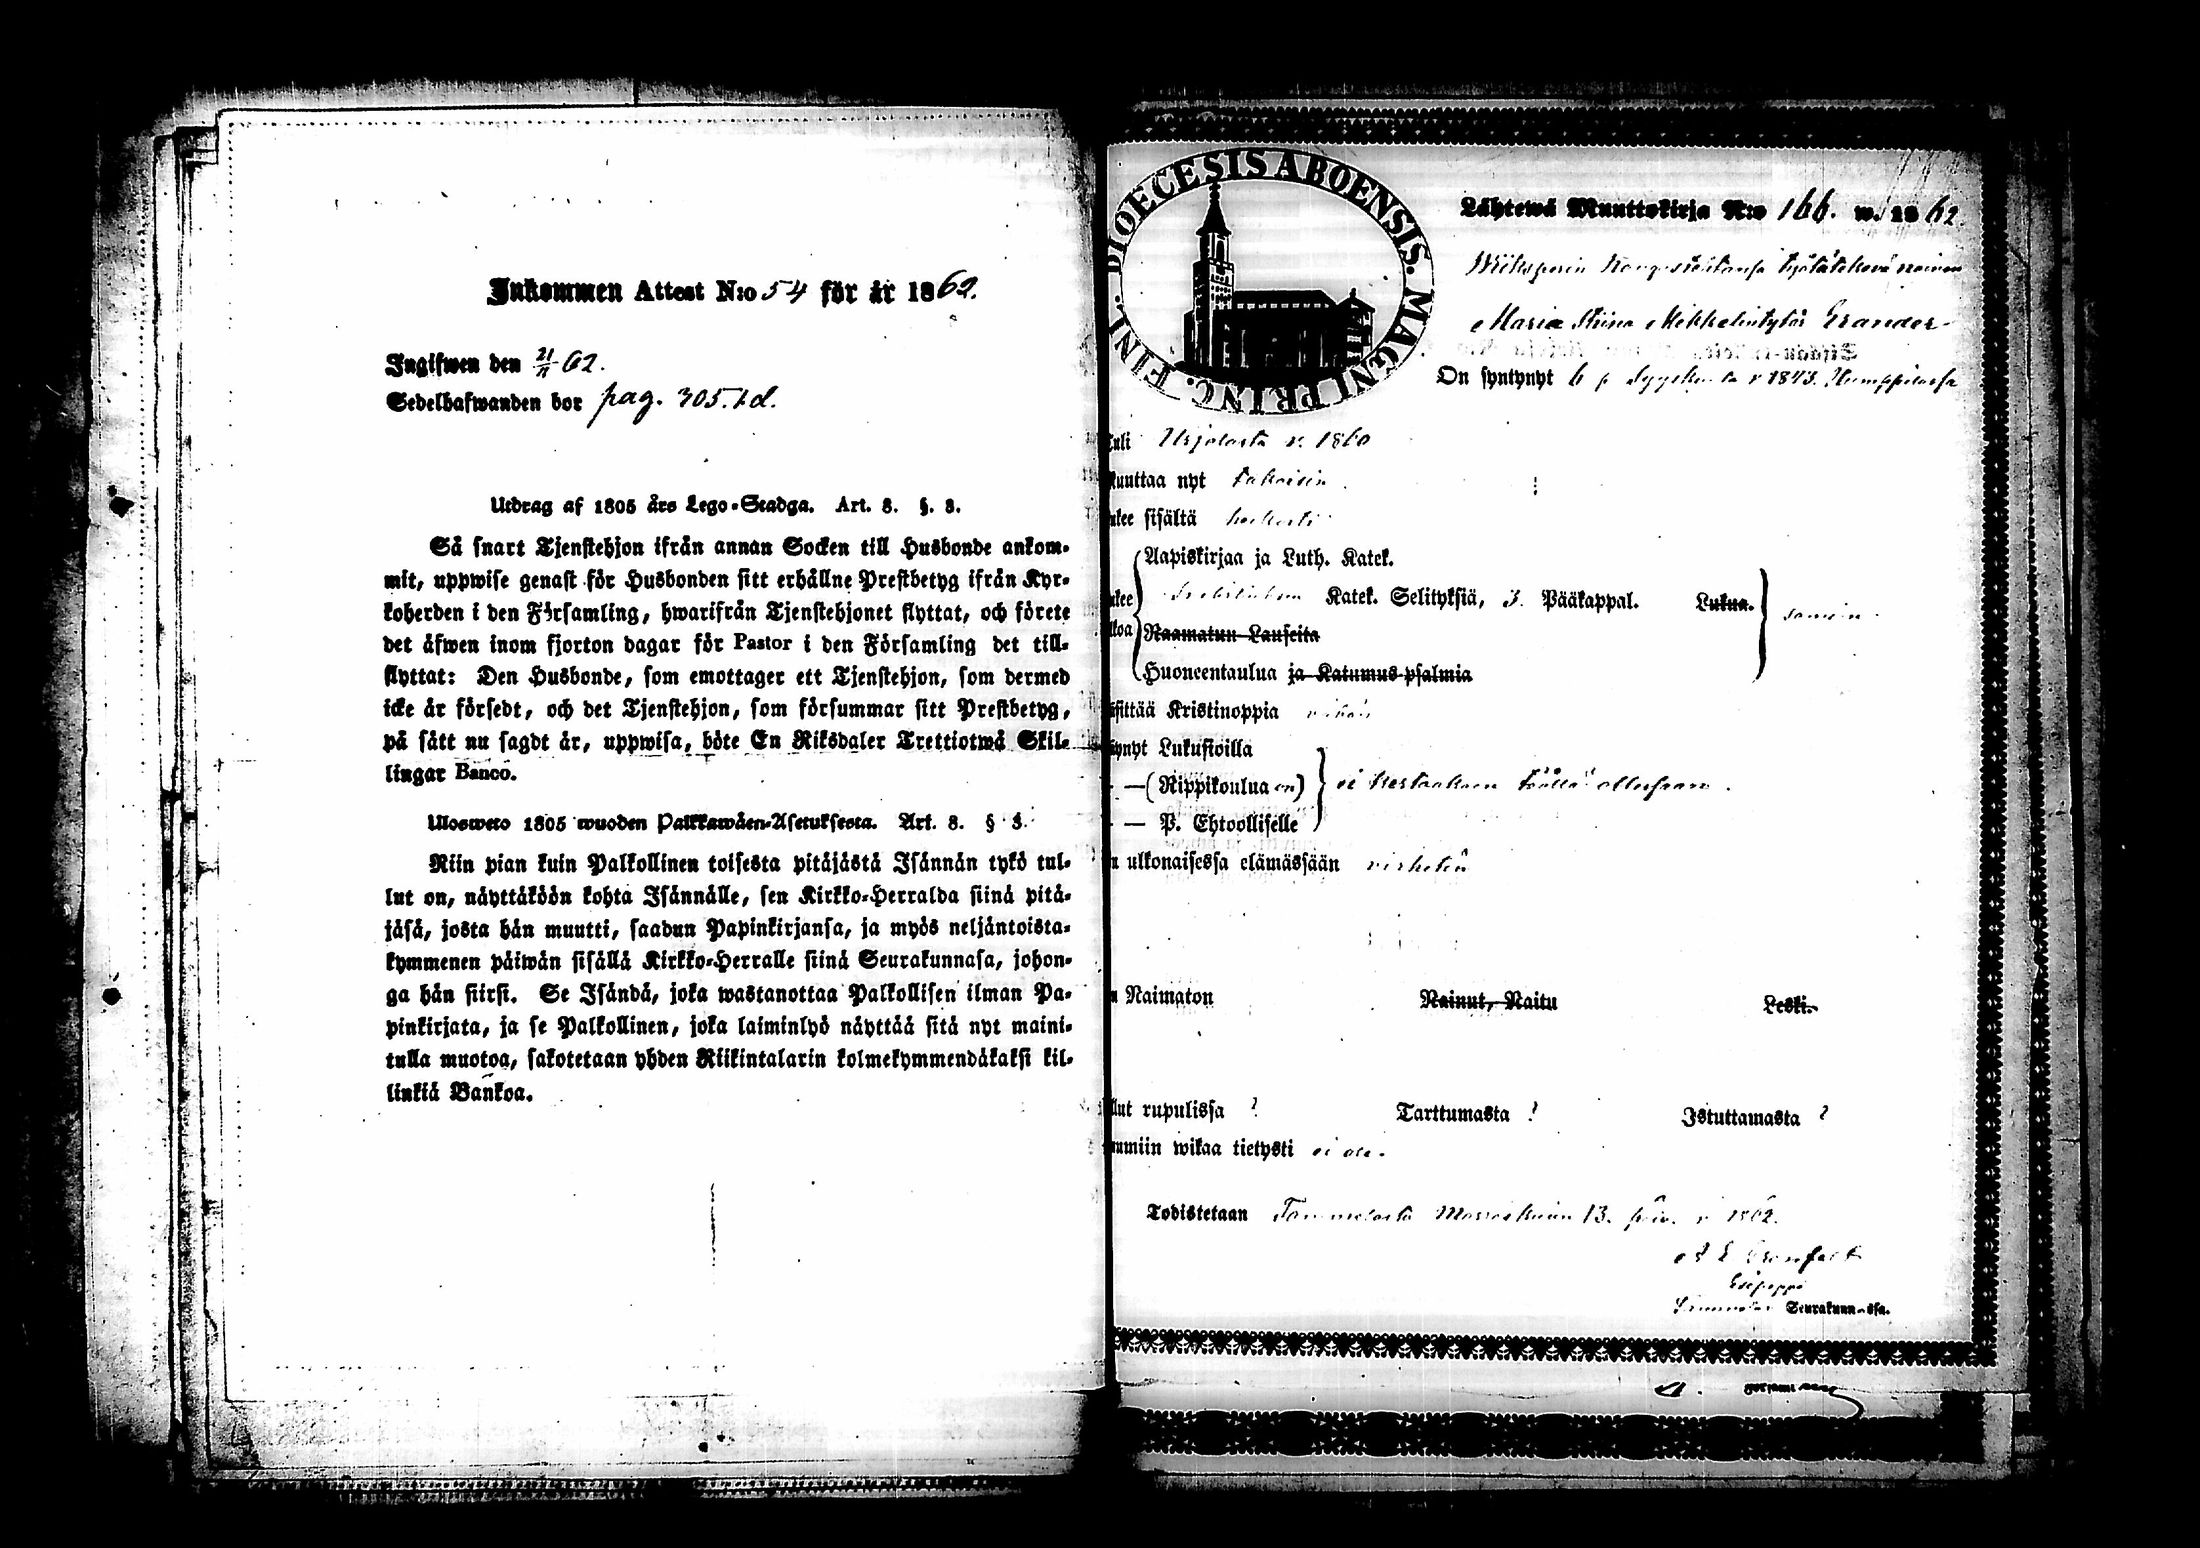 Inkommen Attest N:o 54 för år 1862.
Ingifwen den 21/11 62.
Sedelhafwanden bor pag. 305. t.d.
Utdrag af 1805 års Lego-Stadga. Art. 8. §. 3.
Så snart Tjenstehjon ifrån annan Socken till Husbonde ankom-
mit, uppwise genast för Husbonden sitt erhållne Prestbetyg ifrån Kyr-
koherden i den Församling, hwarifrån Tjenstehjonet flyttat, och förete
det äfwen inom fjorton dagar för Pastor i den Församling det till-
flyttat: Den Husbonde, som emottager ett Tjenstehjon, som dermed
icke är försedt, och det Tjenstehjon, som försummar sitt Prestbetyg,
på sätt nu sagdt är, uppwisa, böte En Riksdaler Trettiotwå Skil-
lingar Banco.
Ulosweto 1805 wuoden Palkkawäen-Asetuksesta. Art. 8. § 3.
Niin pian kuin Palkollinen toisesta pitäjästä Isännän tykö tul-
lut on, näyttäköön kohta Isännälle, sen Kirkko-Herralda siinä pitä-
jäsä, josta hän muutti, saadun Papinkirjansa, ja myös neljäntoista-
kymmenen päiwän sisällä Kirkko-Herralle siinä Seurakunnasa, johon-
ga hän siirsi. Se Isändä, joka wastanottaa Palkollisen ilman Pa-
pinkirjata, ja se Palkollinen, joka laiminlyö näyttää sitä nyt maini-
tulla muotoa, sakotetaan yhden Riikintalarin kolmekymmendäkaksi kil-
linkiä Bankoa.
DIOECESIS ABOENSIS. MAGNI PRINC. FINL.
Lähtewä Muuttokirja N:o 166. w. 1862.
työtätekevä nainen
Maria Stiina Mikkelintytär Grander
On syntynyt 6 p Syyskuuta v 1843. Humppilassa
tuli Urjalasta v. 1860
muuttaa nyt takaisin
ukee sisältä
Aapiskirjaa ja Luth. Katek.
Katek. Selityksiä, 3. Pääkappal. Lukua.
ukee
lkoa
Raamatun Lauseita
samoin
Huoneentaulua ja Katumus-psalmia
äsittää Kristinoppia
äynyt Lukusioilla
— — (Rippikoulua on) ei Kestaaksen täällä ollessaan.
— — P. Ehtoollisella
n ulkonaisessa elämässään virhetön
n Naimaton Nainut, Naitu Leski.
llut rupulissa ? Tarttumasta ? Istuttamasta ?
uumiin wikaa tietysti ei ole.
Todistetaan Tammelasta Marraskuun 13. päiv. v 1862.
Seurakunnassa.